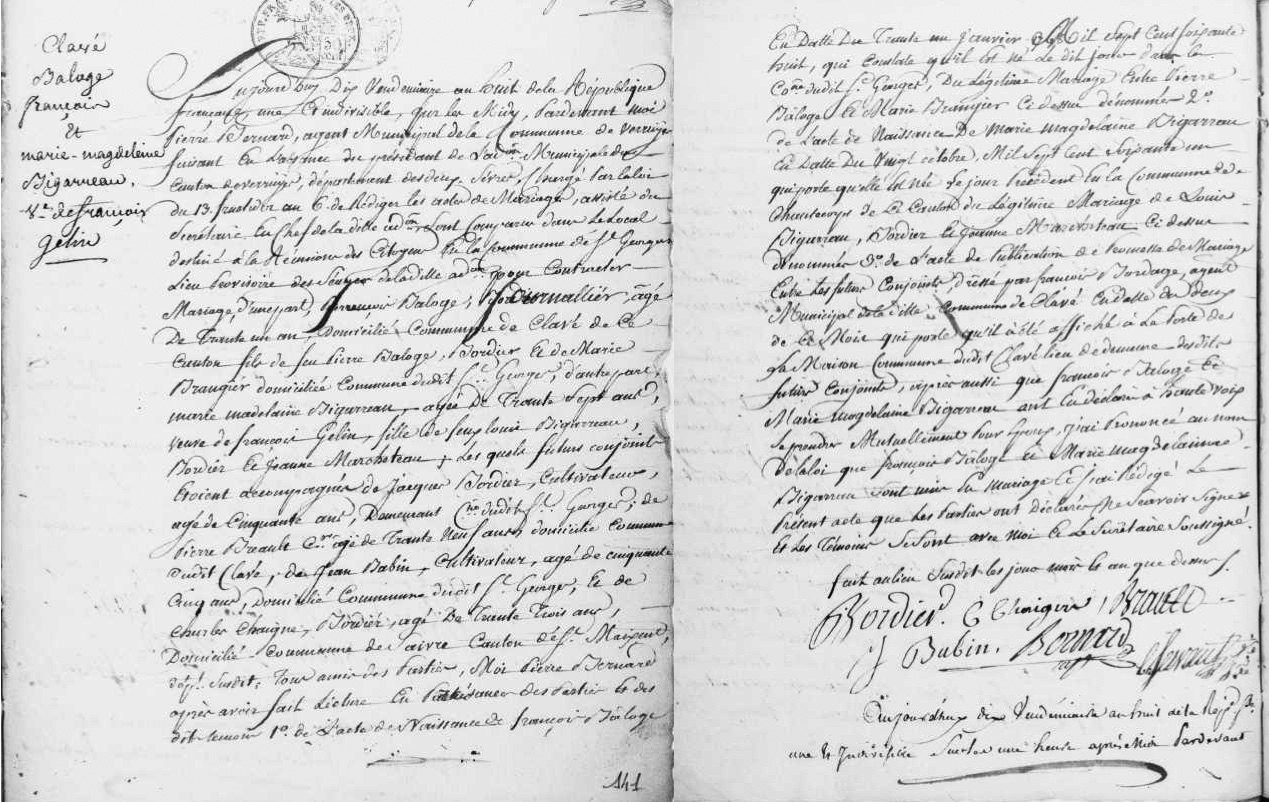 Clavé
Baloge
françois
Et
marie-magdeleine
Bigarreau.
Ve. de françois
gelin
Aujourd'huy Dix Vendemiaire an huit de la République
française, une Et indivisible, sur les Midy, Pardevant moi
Pierre Bernard, agent Municipal de la Commune de Verruye
faisant En L'absence du président de L'adon. Municipale du
Canton de verruije, département des deux Sèvres, Chargé Par la loi
du 13. fructidor an 6. de Rédiger les actes de Mariages, assisté du
Secrétaire En Chef de la dite adon. Sont Comparus dans Le Local
destiné à la Réunion des Citoyens En la Commune de St. Georges
Lieu Provisoire des Séances de la ditte adon. pour Contracter
Mariage, d'une part, françois Baloge, Journallier, âgé
De Trante un an, Domicilié Commune de Clavé de Ce
Canton fils de feu Pierre Baloge, Bordier Et de Marie
Brangier domiciliée Commune dudit St. George, d'autre part
marie madelaine Bigarreau, agée De Trante Sept ans,
veuve de françois Gelin, fille de feu Louis Bigarreau,
Bordier Et Jeanne Marcheteau, Les quels futurs conjoints
Etoient accompagnés de Jacques Bordier, Cultivateur,
agé de Cinquante ans, Demeurant Cne dudit St. George, de
Pierre Breault Cer. agé de Trante Neuf ans domicilié Commune
Dudit Clavé, de Jean Babin, Cultivateur, agé de cinquante
Cinq ans, Domicilié Commune dudit St. George, Et de
Charles Chaigne, Bordier, agé De Trante Trois ans,
Domicilié Commune de Saivre Canton de St. Maixent,
dépt. Susdit, Tous amis des Parties, Moi Pierre Bernard
après avoir fait Lecture En Présence des Parties Et des
dits temoins 1o. de L'acte de Naissance de françois Baloge
141
En Datte Du Trante un Janvier Mil Sept Cent Soixante
huit, qui Constate qu'il Est né Le dit jour dans la
Cone dudit St. Georges, Du Légitime Mariage Entre Pierre
Baloge Et Marie Brangier Ci dessus dénommés 2o.
de L'acte de Naissance De Marie magdelaine Bigarreau
En Datte Du Vingt octobre, Mil Sept Cent Soixante un
qui porte qu'elle Est née Le jour Précédent En la Commune de
Chantecorps de Ce Canton du Légitime Mariage de Louis
Bigarreau, Bordier Et Jeanne Marcheteau Ci dessus
dénommés 3o. de L'acte de Publication de Promesse de Mariage
Entre Les futurs Conjoints, dressé par françois Bordage, agent
Municipal de la ditte Commune de Clavé En datte du deux
de Ce Mois qui porte qu'il à été affiché à La Porte de
La Maison Commune dudit Clavé lieu de demeure desdits
futurs Conjoints, après aussi que françois Baloge Et
Marie magdelaine Bigarreau ont Eu déclaré à haute voix
Se prendre Mutuellement Pour Epoux, j'ai Prononcé au nom
De la loi que françois Baloge et Marie magdelainne
Bigarreau Sont unis En Mariage Et j'ai Rédigé Le
Présent acte que Les Parties ont déclaré Ne Scavoir Signer
Et Les Témoins Se Sont avec Moi Et Le Secrétaire Soussigné.
fait au lieu Susdit les jour mois et an que dessus.
Bordier. C Chaigne, Braud
J Babin. Bernard
agt
Aujourd'huy dix Vendémiaire an huit de la Repque fse.
une Et Indivisible Sur les une heure après Midi Pardevant